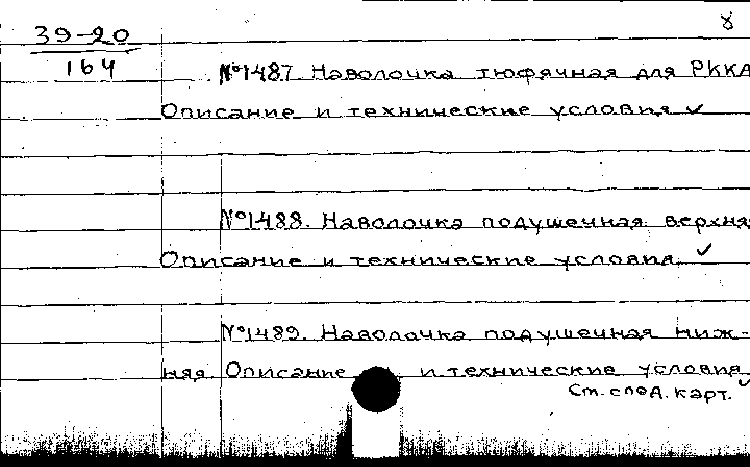 8
39-20
164
№1487 Наволочка тюфячная для РККА
Описание и технические условия ✓
№1488. Наволочка подушечная верхня
Описание и технические условия. ✓
№1489. Наволочка подушечная ниж-
няя Описание и технические условия
См. след. карт. ✓